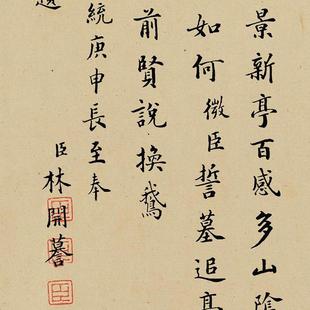 景新亭百感多山陰
如何微臣誓墓追高
前賢說換鵝
統庚申長至奉
臣林開謩